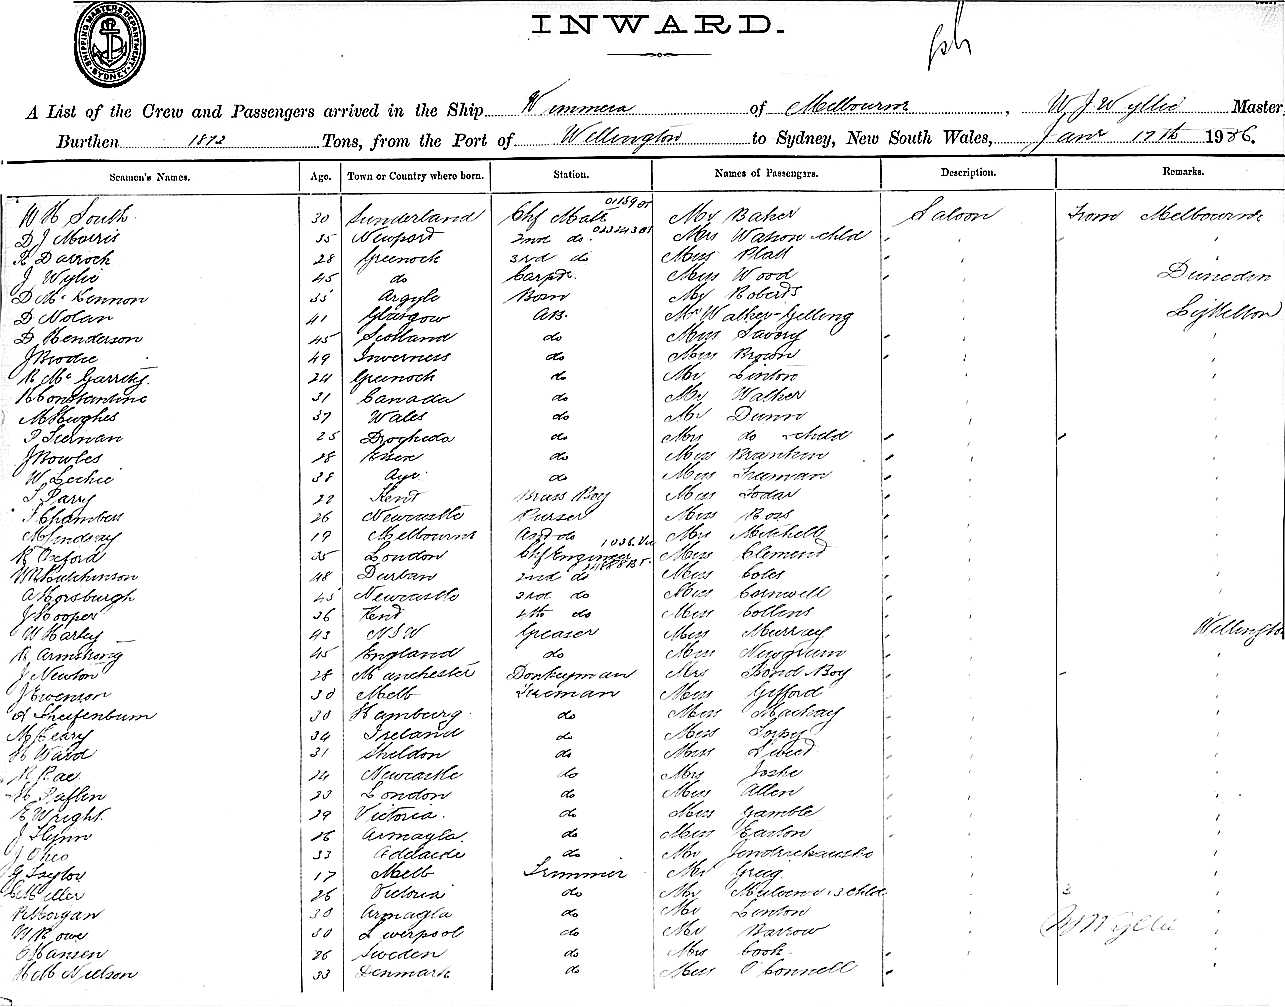 SHIPPING MASTERS DEPARTMENT SYDNEY
INWARD.
A List of the Crew and Passengers arrived in the Ship Wimmera of Melbourne, W J Wyllie Master
Burthen 1872 Tons, from the Port of Wellington to Sydney, New South Wales, Jany 17th 1906.
Seamen's Names. Age. Town or Country where born. Station. Names of Passengers. Description. Remarks.
W H South 30 Sunderland Chf Mate 011590s Mr Baker Saloon From Melbourne
D J Morris 35 Newport 2nd do Mrs Watson child
R Darroch 28 Greenock 3rd do Miss Platt
J Wylie 45 do Carptr Miss Wood Dunedin
D Mc Kennon 35 Argyle Bosn Mr Roberts
D Nolan 41 Glasgow AB. Mr Walker-Gelling Lyttelton
D Henderson 45 Scotland do Miss Savory
J Brodie 49 Inverness do Miss Brown
R Mc Garrety 24 Greenock do Mr Linton
H Constantine 31 Canada do Mr Walker
M Hughes 37 Wales do Mr Dunn
P Tiernan 25 Drogheda do Mrs do child
J Bowles 28 Essex do Miss Frankin
W Leckie 38 Ayr do Miss Freeman
T Parry 22 Kent Brass Boy Miss Todar
T Chambers 26 Newcastle Purser Miss Ross
M Lindsay 19 Melbourne Asst do Mrs Mitchell
R Oxford 35 London Chf Engineer Miss Clemend
W R Hutchinson 48 Durban 2nd do Miss Coles
A Horsburgh 45 Newcastle 3rd do Miss Cornwell
J Hooper 36 Kent 4th do Miss Collins
W Harley 43 NSW Greaser Miss Murray Wellington
R Armstrong 45 England do Miss Newgrum
J Newton 28 Manchester Donkeyman Mrs Bond Boy
J Evenson 30 Melb Fireman Miss Gifford
A Theifenbum 30 Hamburg do Miss Mackay
M Leary 34 Ireland do Miss Torpy
H Ward 31 Sheldon do Miss
R Rae 24 Newcastle do Mrs Joske
H Paflin 23 London do Miss Allen
E Wright 29 Victoria do Miss Gamble
J Flynn 26 Armagh do Miss Easton
J Oheo 33 Adelaide do Mr
G Taylor 17 Melb Trimmer Mr Greig
C Miller 26 Victoria do Mr 3 chld 3
R Morgan 30 Armagh do Mr Linton
W Rowe 30 Liverpool do Mr Barrow W J Wyllie
O Hansen 26 Sweden do Mrs Cook
H M Neilson 33 Denmark do Miss O'Connell